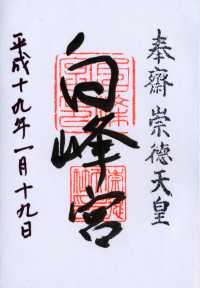 奉齋 崇德天皇
白峰宮
平成十九年一月十九日